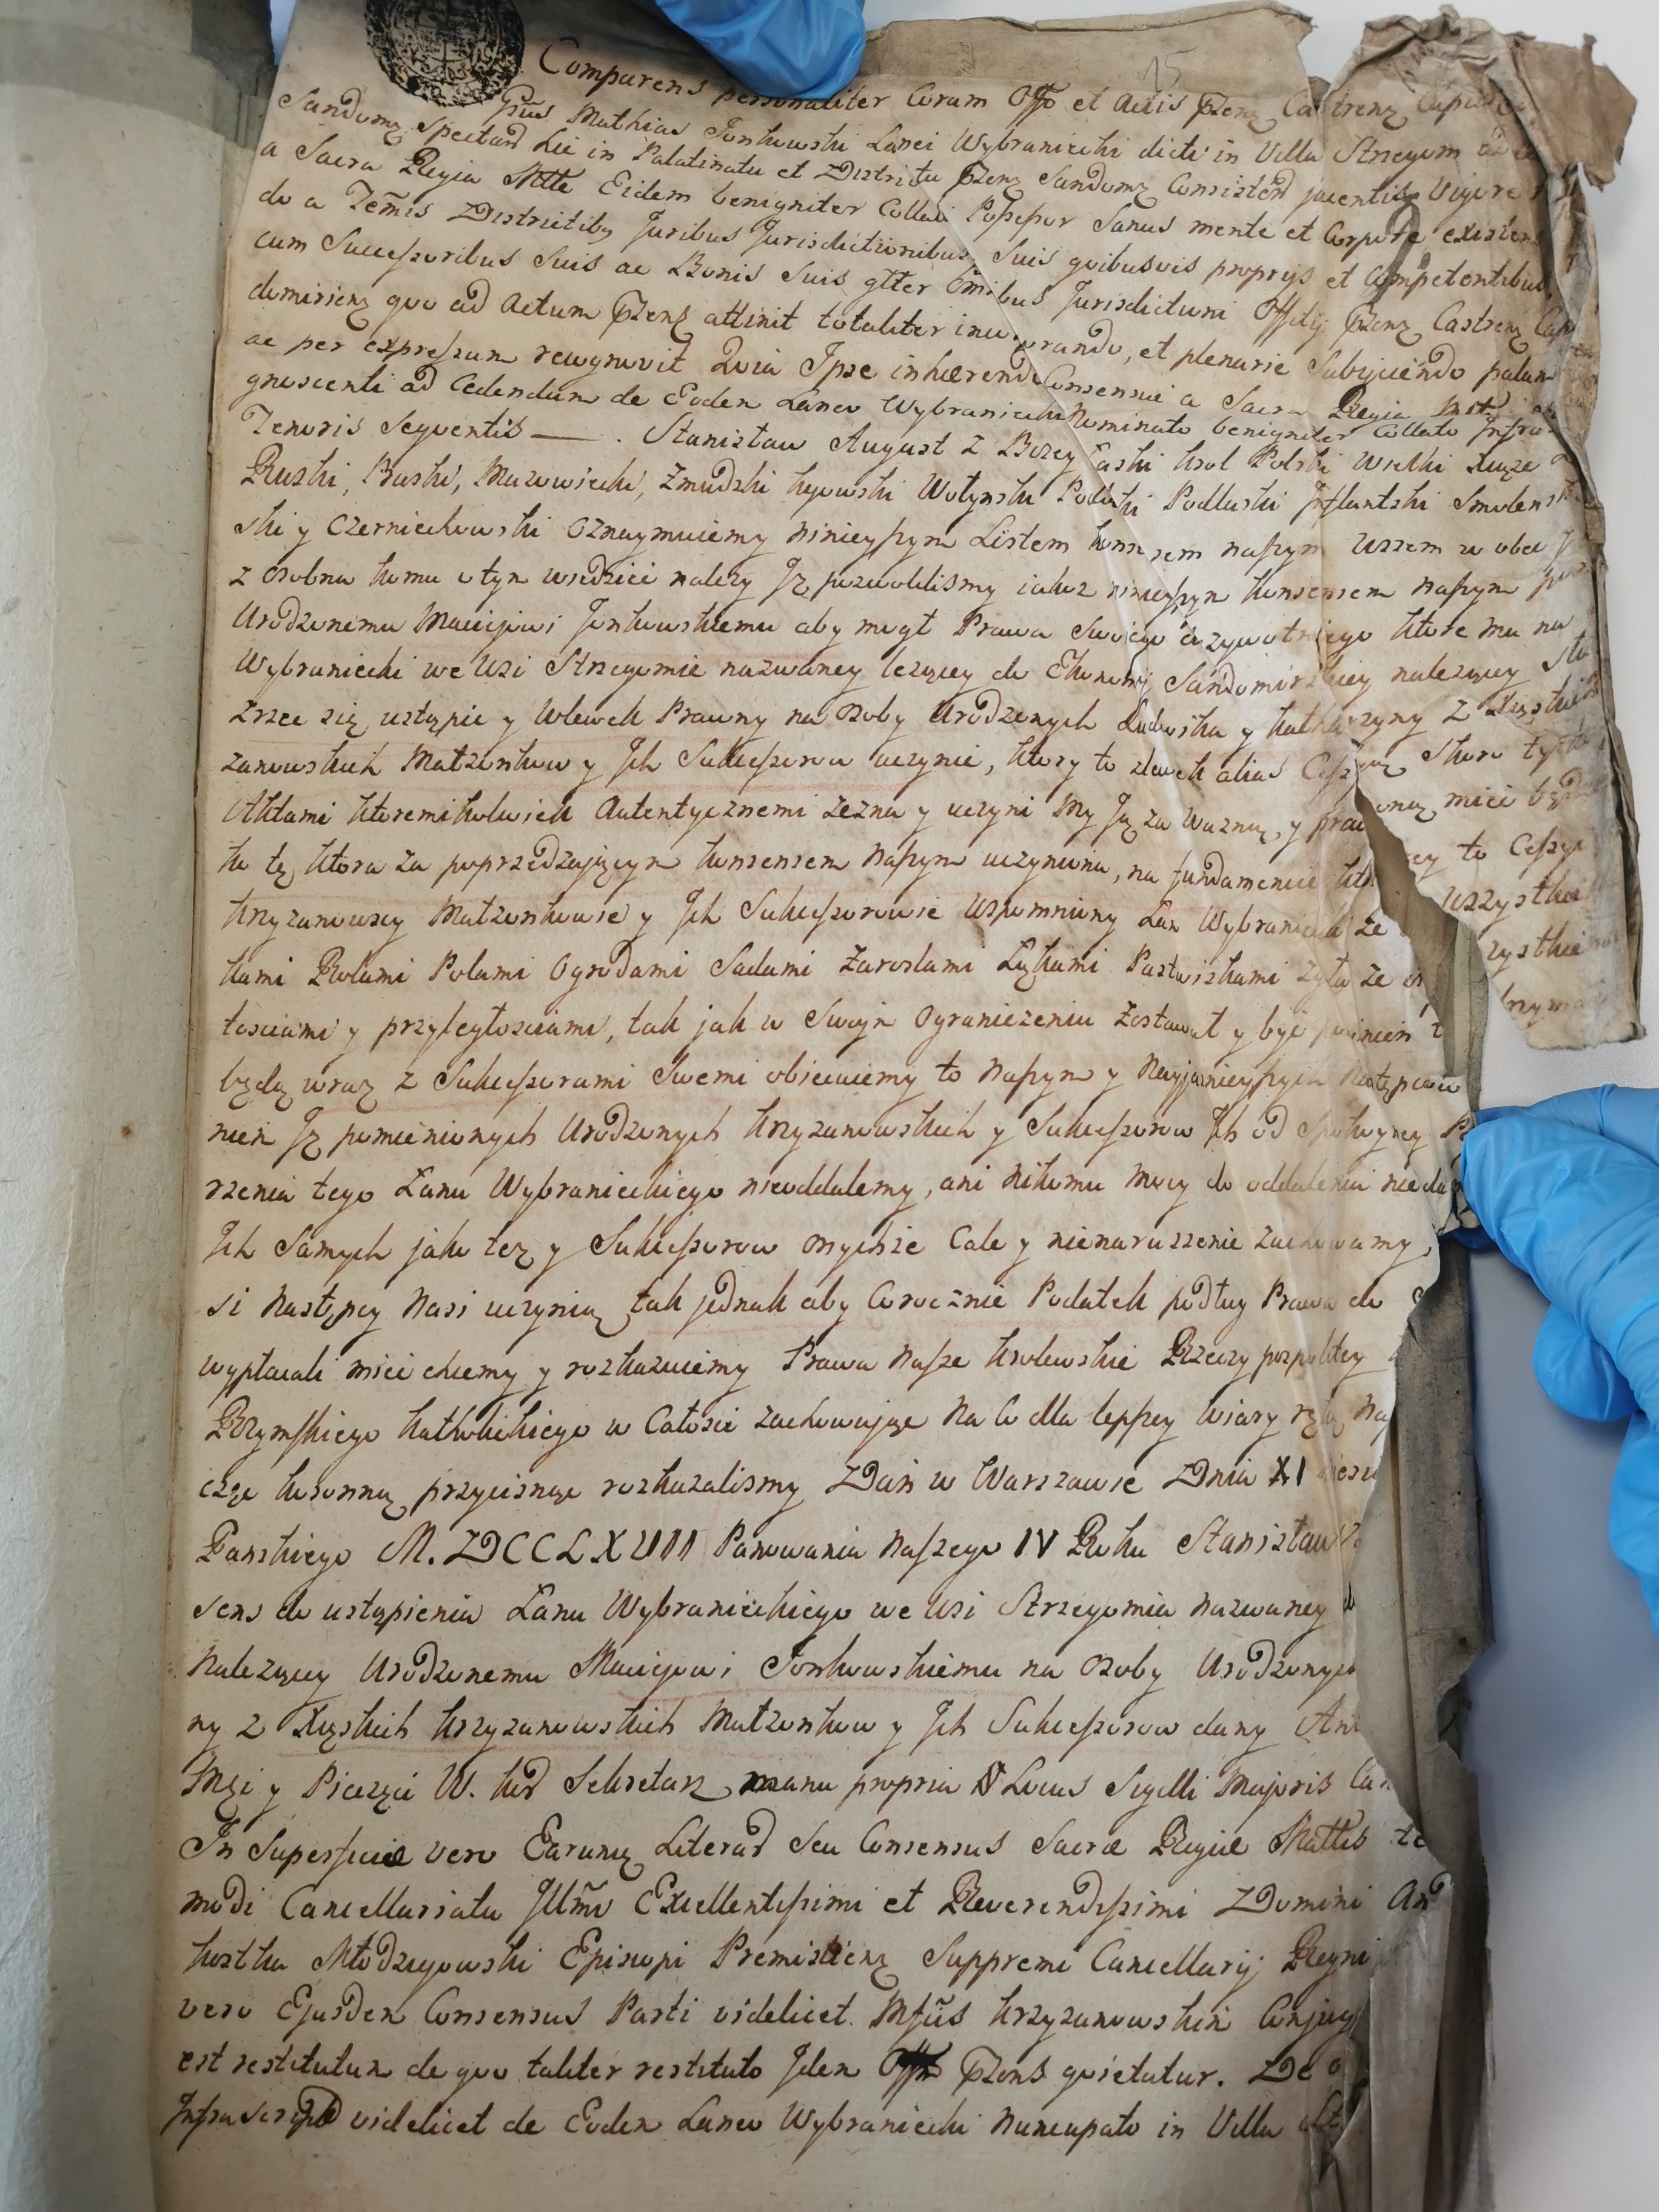 15
Comparens personaliter Coram Offo et Actis Przenz Castrenz Capit
Gnus Mathias Jonkowski Lanei Wybraniecki dicti in Villa Strzegom
Sandomz Spectand Lie in Palatinatu et Districtu Przenz Sandomz Consistend jacentis Vigore
a Sacra Regia Mtte Eidem benigniter Collati Possessor Sanus mente et Corpore existens
do a Temis Districtibz Juribus Jurisdictionibus Suis quibusvis proprijs et Competentibus
cum Successoribus Suis ac Bonis Suis gtter omibus Jurisdictioni Officij Przenz Castrenz Cap
domiriens quo ad Actum Przenz attinit totaliter incorporando, et plenarie Subijciendo palam
ac per expressum recognovit Quia Ipse inhærendo Consensui a Sacra Regia Mtte
gnoscenti ad Cedendum de Eodem Laneo Wybraniecki Nominato benigniter Collato Infra
Tenoris Sequentis — . Stanisław August z Bozey Łaski Krol Polski Wielki Xiąże
Ruski, Pruski, Mazowiecki, Zmudzki Kyowski Wołynski Podolski Podlaski Inflantski Smolens
ski y Czerniechowski Oznaymuiemy ninieyszym Listem Konsensem naszym wszem w obec
z osobna komu o tym wiedziec nalezy Iz pozwolilismy iakoz ninieyszym Konsensem naszym
Urodzonemu Maciejowi Jonkowskiemu aby mogł Prawa Swoiego dozywotniego ktore ma na
Wybraniecki we Wsi Strzegomie nazwaney lezącey do Ekonomij Sandomirskiey nalezącey
Zrzec się ustąpic y Wlewek Prawny na Osoby Urodzonych Ludwika y Katharzyny z Xięskich
zanowskich Małzonkow y Ich Sukcessorow uczynic, ktory to wlewek alias Cessyą Skoro tylko
Aktami ktoremikolwiek Autentycznemi zezna y uczyni My Ją za Wazną, y prawną miec będz
ko tę ktora za poprzedzającym Konsensem naszym uczyniona, na fundamencie ktorey to Cessyi
Krzyzanowscy Małzonkowie y Ich Sukcessorowie Wspomniony Łan Wybraniecki ze wszystkie
kami Rolami Polami Ogrodami Sadami Zaroslami Łąkami Pastwiskami zgoła ze wszystkie
tosciami y przyległosciami, tak jak w Swoym Ograniczeniu Zostawał y być powinien trzyma
będą wraz z Sukcessorami Swemi obiecuiemy to naszym y Nayjasnieyszych Następcow
niem Iz pomienionych Urodzonych Krzyzanowskich y Sukcessorow Ich od Spokoyney
rzenia tego Łanu Wybranieckiego nieoddalemy, ani nikomu mocy do oddalenia nieda
Ich Samych jako tez y Sukcessorow Onychze Cale y nienaruszenie zachowamy,
si Następcy Nasi uczynią tak jednak aby Corocznie Podatek podług Prawa do
wypłacali miec chcemy y rozkazuiemy Prawa Nasze Krolewskie Rzeczy pospolitey
Rzymskiego Katholickiego w Całosci zachowując Na Co dla lepszey Wiary ręką
częc Koronną przycisnąc rozkazalismy Dan w Warszawie Dnia XI
Panskiego M. DCCLXVIII Panowania Naszego IV Roku Stanisław
sens do ustąpienia Łanu Wybranieckiego we Wsi Strzegomia nazwaney
Nalezącey Urodzonemu Maciejowi Jonkowskiemu na Osoby Urodzonych
ny z Xięskich Krzyzanowskich Małzonkow y Ich Sukcessorow dany
Mci y Pieczęci W. Kor Sekretarz manu propria Locus Sigelli Majoris Can
In Superficie vero Earumz Literad Seu Consensus Sacræ Regiæ Mattis
modi Cancellariatu Illmi Excellentissimi et Reverendissimi Domini And
Kostka Młodzieyowski Episcopi Premislienz Suppremi Cancellarij Regni
vero Ejusdem Consensus Parti videlicet Mfiis Krzyzanowskim Conjug
est restitutum de quo taliter restituto Idem Offm Przens quietatur. De
Infrascript videlicet de Eodem Laneo Wybraniecki Nuncupato in Villa